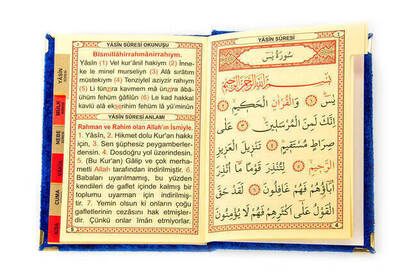 YÂSÎN SÛRESİ OKUNUŞU
Bismillâhirrahmânirrahîm.
Yâsîn (1) Vel kur'ânil hakîym (2) İnne-
ke le minel murseliyn (3) Alâ sırâtım
müstekıym (4) Tenziylel aziyzir rahıym
(5) Li tünzira kavmem mâ ünzira âbâ-
ühüm fehüm ğâfilûn (6) Le kad hakkal
kavlü alâ ekserihim fehüm lâ yü'minûn
YÂSÎN SÛRESİ ANLAMI
Rahman ve Rahim olan Allah'ın İsmiyle.
1. Yâsîn, 2. Hikmet dolu Kur'an hakkı
için, 3. Sen şüphesiz peygamberler-
densin. 4. Dosdoğru yol üzerindesin.
5. (Bu Kur'an) Gâlip ve çok merha-
metli Allah tarafından indirilmiştir. 6.
Babaları uyarılmamış, bu yüzden
kendileri de gaflet içinde kalmış bir
toplumu uyarman için indirilmiş-
tir. 7. Yemin olsun ki onların çoğu
gafletlerinin cezasını hak etmişler-
dir. Çünkü onlar îman etmiyorlar.
YÂSÎN
MÜLK
NEBE
CUMA
YÂSÎN SÛRESİ
سُورَةُ يٰسٓ
بِسْمِ اللّٰهِ الرَّحْمٰنِ الرَّحِيمِ
يٰسٓ ﴿١﴾ وَالْقُرْاٰنِ الْحَكِيمِ ﴿٢﴾
اِنَّكَ لَمِنَ الْمُرْسَلِينَ ﴿٣﴾ عَلٰى
صِرَاطٍ مُسْتَقِيمٍ ﴿٤﴾ تَنْزِيلَ الْعَزِيزِ
الرَّحِيمِ ﴿٥﴾ لِتُنْذِرَ قَوْمًا مَٓا اُنْذِرَ
اٰبَٓاؤُ۬هُمْ فَهُمْ غَافِلُونَ ﴿٦﴾ لَقَدْ حَقَّ
الْقَوْلُ عَلٰٓى اَكْثَرِهِمْ فَهُمْ لَا يُؤْمِنُونَ